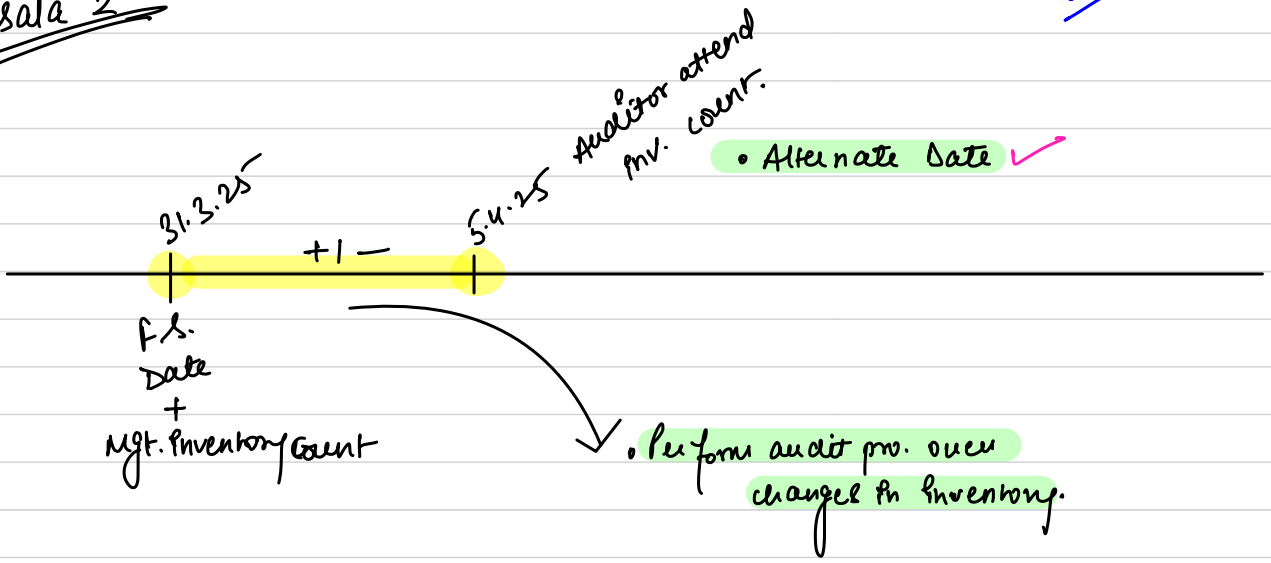 sala 2
Auditor attend
inv. count.
• Alternate Date ✓
31.3.25
5.4.25
+/-
F.S.
Date
+
Mgt. Inventory Count
• Perform audit pro. over
changes in inventory.